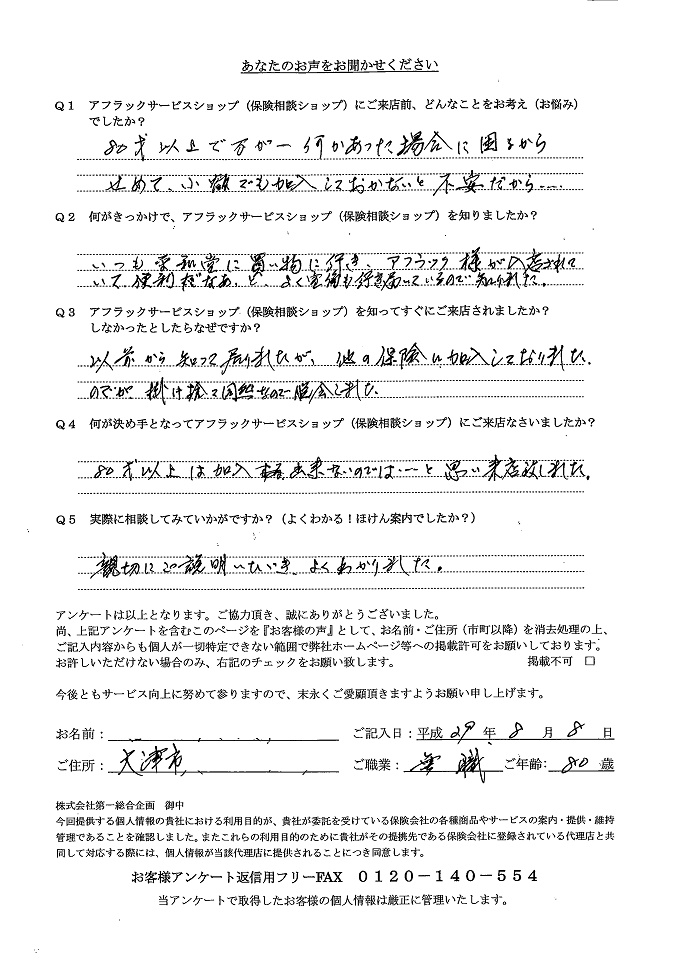 あなたのお声をお聞かせください
Q1 アフラックサービスショップ（保険相談ショップ）にご来店前、どんなことをお考え（お悩み）
でしたか？
80才以上で万が一何かあった場合に困るから
せめて、小額でも加入しておかないと不安だから…
Q2 何がきっかけで、アフラックサービスショップ（保険相談ショップ）を知りましたか？
いつも平和堂に買い物に行き、アフラック様が入店されて
いて便利だなあ、と、よく店舗も行き届いているので知りました。
Q3 アフラックサービスショップ（保険相談ショップ）を知ってすぐにご来店されましたか？
しなかったとしたらなぜですか？
以前から知って居りましたが、他の保険に加入しておりました
のですが掛け捨て
Q4 何が決め手となってアフラックサービスショップ（保険相談ショップ）にご来店なさいましたか？
80才以上は加入出来ないのでは…と思い来店致しました。
Q5 実際に相談してみていかがですか？（よくわかる！ほけん案内でしたか？）
親切にご説明いただき、よくわかりました。
アンケートは以上となります。ご協力頂き、誠にありがとうございました。
尚、上記アンケートを含むこのページを『お客様の声』として、お名前・ご住所（市町以降）を消去処理の上、
ご記入内容からも個人が一切特定できない範囲で弊社ホームページ等への掲載許可をお願いしております。
お許しいただけない場合のみ、右記のチェックをお願い致します。 掲載不可 □
今後ともサービス向上に努めて参りますので、末永くご愛顧頂きますようお願い申し上げます。
お名前： ご記入日：平成 29 年 8 月 8 日
ご住所： 大津市 ご職業： 無職 ご年齢: 80 歳
株式会社第一総合企画 御中
今回提供する個人情報の貴社における利用目的が、貴社が委託を受けている保険会社の各種商品やサービスの案内・提供・維持
管理であることを確認しました。またこれらの利用目的のために貴社がその提携先である保険会社に登録されている代理店と共
同して対応する際には、個人情報が当該代理店に提供されることにつき同意します。
お客様アンケート返信用フリーFAX 0120－140－554
当アンケートで取得したお客様の個人情報は厳正に管理いたします。